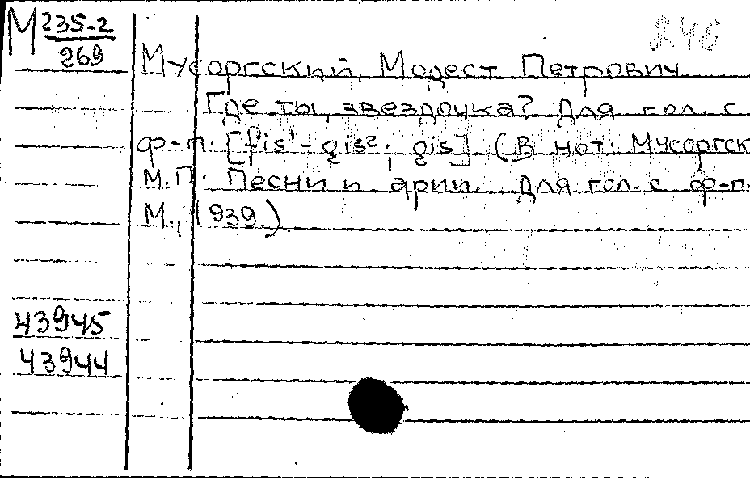 М 235-2
269
246
Мусоргский, Модест Петрович
Где ты, звездочка? Для гол. с
ф-п. [fis¹-gis²; gis] (В нот: Мусоргск
М.П. Песни и арии. Для гол. с ф-п.
М., 1939)
43945
43944